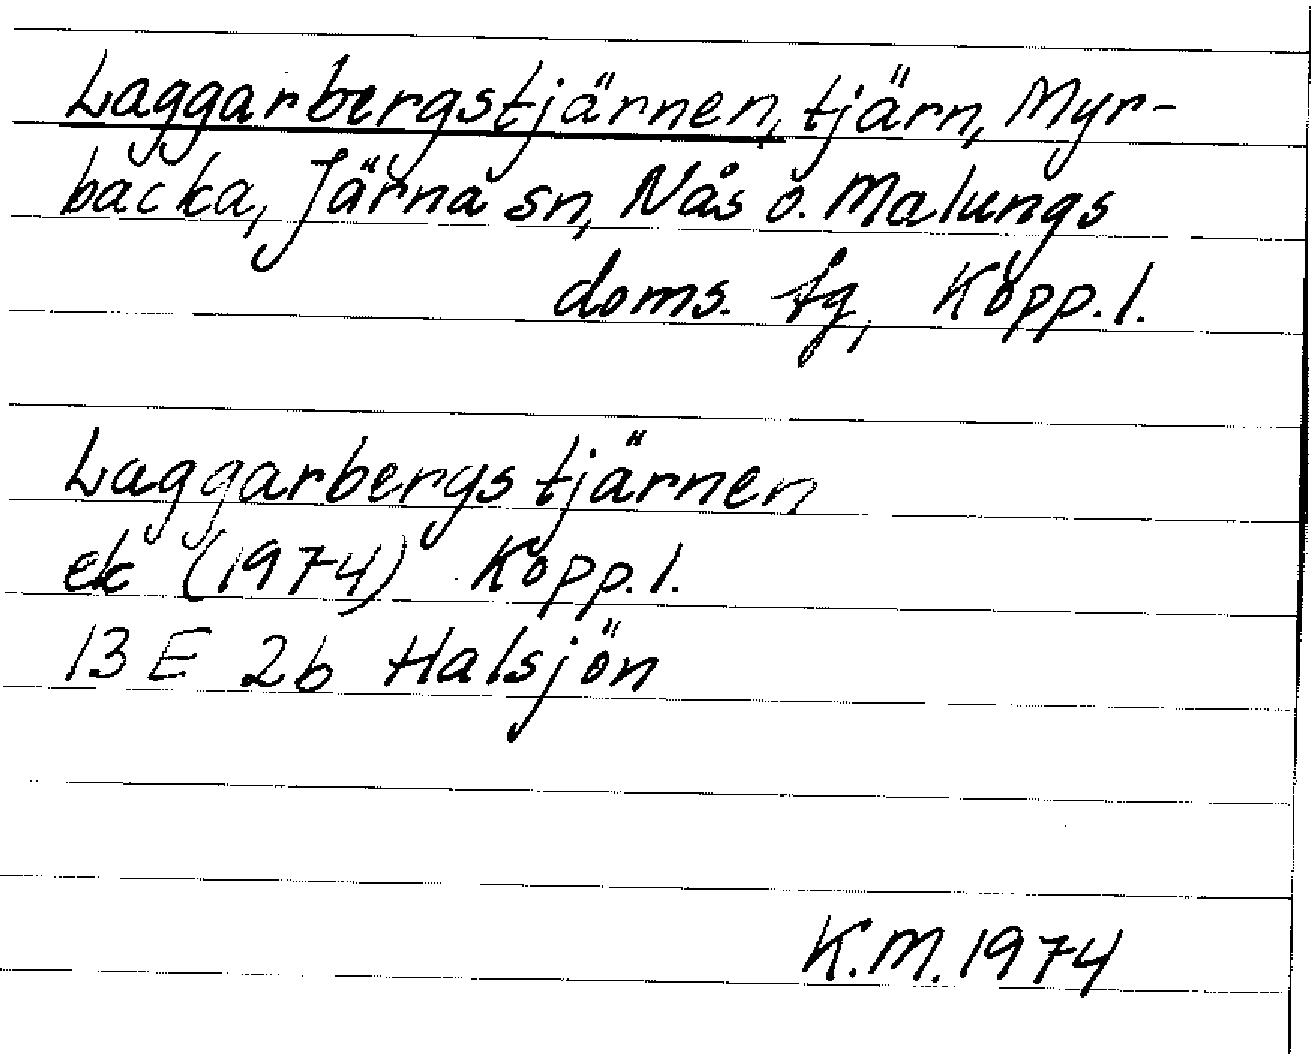 Laggarbergstjärnen, tjärn, Myr-
backa, Järna sn, Nås o. Malungs
doms. tg, Kopp. l.
Laggarbergstjärnen
ek (1974) Kopp. l.
13 E 2b Halsjön
K.M. 1974